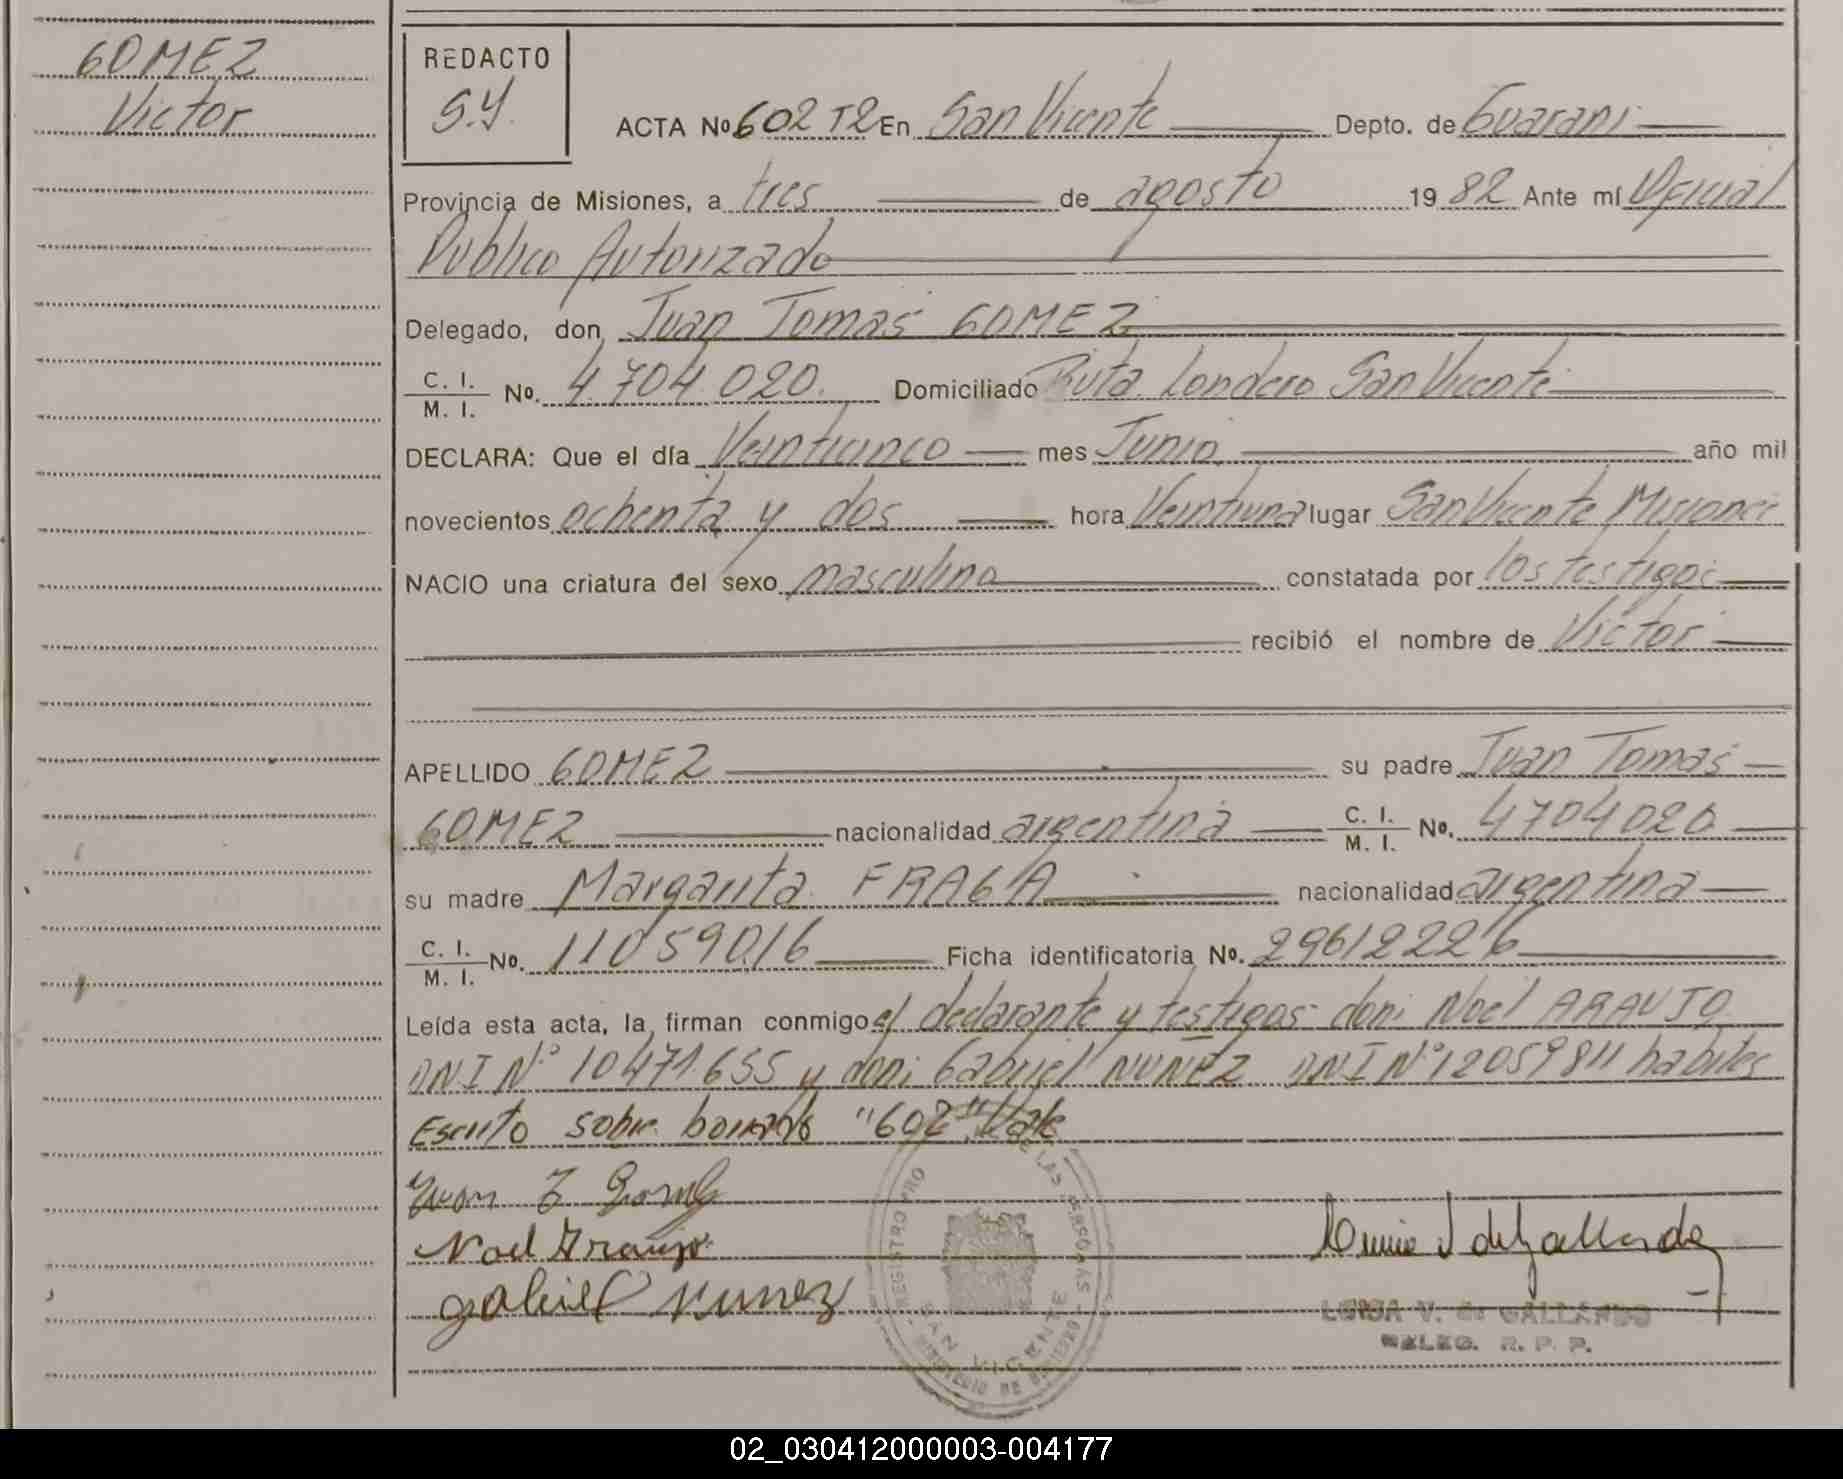 GOMEZ
Victor
REDACTO
S.Y.
ACTA Nº 602 T2 En San Vicente Depto. de Guarani
Provincia de Misiones, a tres de agosto 1982 Ante mí Oficial
Publico Autorizado
Delegado, don Juan Tomas GOMEZ
C. I. / M. I. No. 4.704.020. Domiciliado Ruta Londero San Vicente
DECLARA: Que el día Veinticinco mes Junio año mil
novecientos ochenta y dos hora Veintiuna lugar San Vicente Misiones
NACIO una criatura del sexo masculino constatada por los testigos
recibió el nombre de Victor
APELLIDO GOMEZ su padre Juan Tomas
GOMEZ nacionalidad argentina C. I. / M. I. No. 4704020
su madre Margarita FRAGA nacionalidad argentina
C. I. / M. I. No. 11059016 Ficha identificatoria No. 29612226
Leída esta acta, la firman conmigo el declarante y testigos don: Noel ARAUJO
DNI Nº 10471.655 y don: Gabriel NUÑEZ DNI Nº 12059811 habiles
Escrito sobre borrado "602" Vale
Juan T Gomez
Noel Araujo
Gabriel Nunez
REGISTRO PRO LAS PERSONAS
SAN VICENTE
MINISTERIO DE GOBIERNO
LUISA V. de GALLARDO
DELEG. R. P. P.
02_030412000003-004177